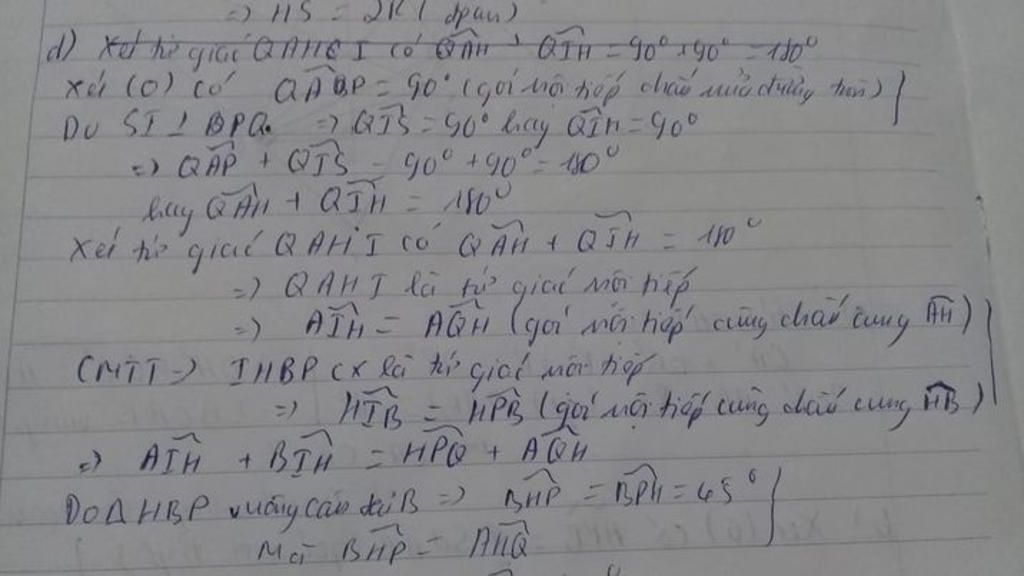 =) HS = 2R ( đpcm)
d) Xét tứ giác QAHI có QAH + QIH = 90° + 90° = 180°
Xét (O) có QABP = 90° (góc nội tiếp chắn nửa đường tròn)
Do SI ⊥ BPQ. =) QIS = 90° hay QIH = 90°
=) QAP + QIS = 90° + 90° = 180°
hay QAH + QIH = 180°
Xét tứ giác QAHI có QAH + QIH = 180°
=) QAHI là tứ giác nội tiếp
=) AIH = AQH (góc nội tiếp cùng chắn cung AH)
CMTT =) IHBP cx là tứ giác nội tiếp
=) HIB = HPB (góc nội tiếp cùng chắn cung HB)
=) AIH + BIH = HPQ + AQH
Do Δ HBP vuông cân tại B =) BHP = BPH = 45°
Mà BHP = AHQ